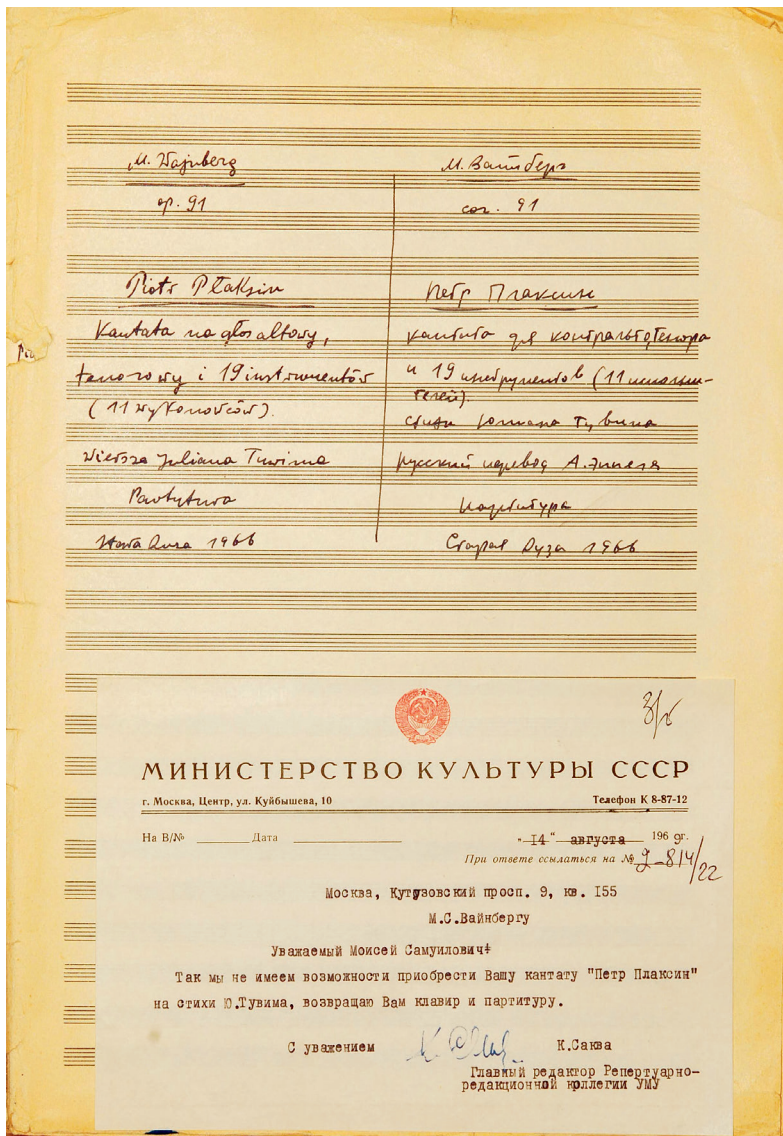 M. Wajnberg
op. 91
Piotr Płaksin
Kantata na głos altowy,
tenorowy i 19 instrumentów
(11 wykonawców).
Wiersze Juliana Tuwima
Partytura
Stara Ruza 1966
М. Вайнберг
соч. 91
Петр Плаксин
кантата для контральто, тенора
и 19 инструментов (11 исполни-
телей).
стихи Юлиана Тувима
русский перевод А. Эппеля
партитура
Старая Руза 1966
МИНИСТЕРСТВО КУЛЬТУРЫ СССР
г. Москва, Центр, ул. Куйбышева, 10 Телефон К 8-87-12
На В/№ Дата „14“ августа 1969г.
При ответе ссылаться на № 9-814/22
Москва, Кутузовский просп. 9, кв. 155
М.С.Вайнбергу
Уважаемый Моисей Самуилович!
Так мы не имеем возможности приобрести Вашу кантату "Петр Плаксин"
на стихи Ю.Тувима, возвращаю Вам клавир и партитуру.
С уважением К.Саква
Главный редактор Репертуарно-
редакционной коллегии УМУ